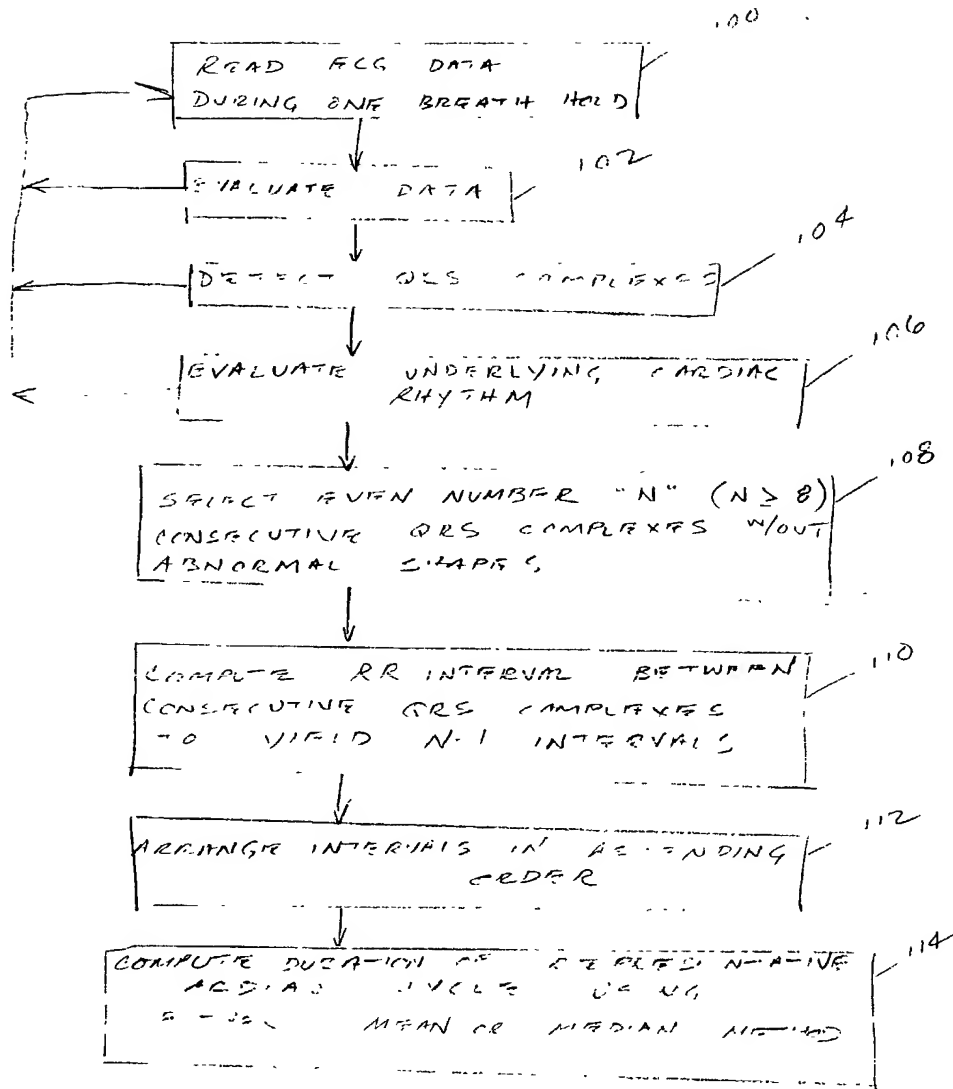 100
READ ECG DATA
DURING ONE BREATH HOLD
102
EVALUATE DATA
104
DETECT QRS COMPLEXES
106
EVALUATE UNDERLYING CARDIAC
RHYTHM
108
SELECT EVEN NUMBER "N" (N ≥ 8)
CONSECUTIVE QRS COMPLEXES W/OUT
ABNORMAL SHAPES
110
COMPUTE RR INTERVAL BETWEEN
CONSECUTIVE QRS COMPLEXES
TO YIELD N-1 INTERVALS
112
ARRANGE INTERVALS IN ASCENDING
ORDER
114
COMPUTE DURATION OF REPRESENTATIVE
CARDIAC CYCLE USING
EITHER MEAN OR MEDIAN METHOD